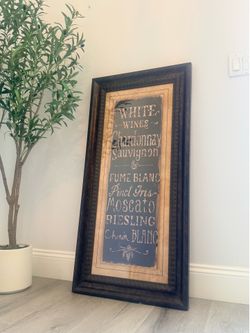 WHITE
WINES
Chardonnay
Sauvignon
&
FUMÉ BLANC
Pinot Gris
Moscato
RIESLING
Chenin BLANC